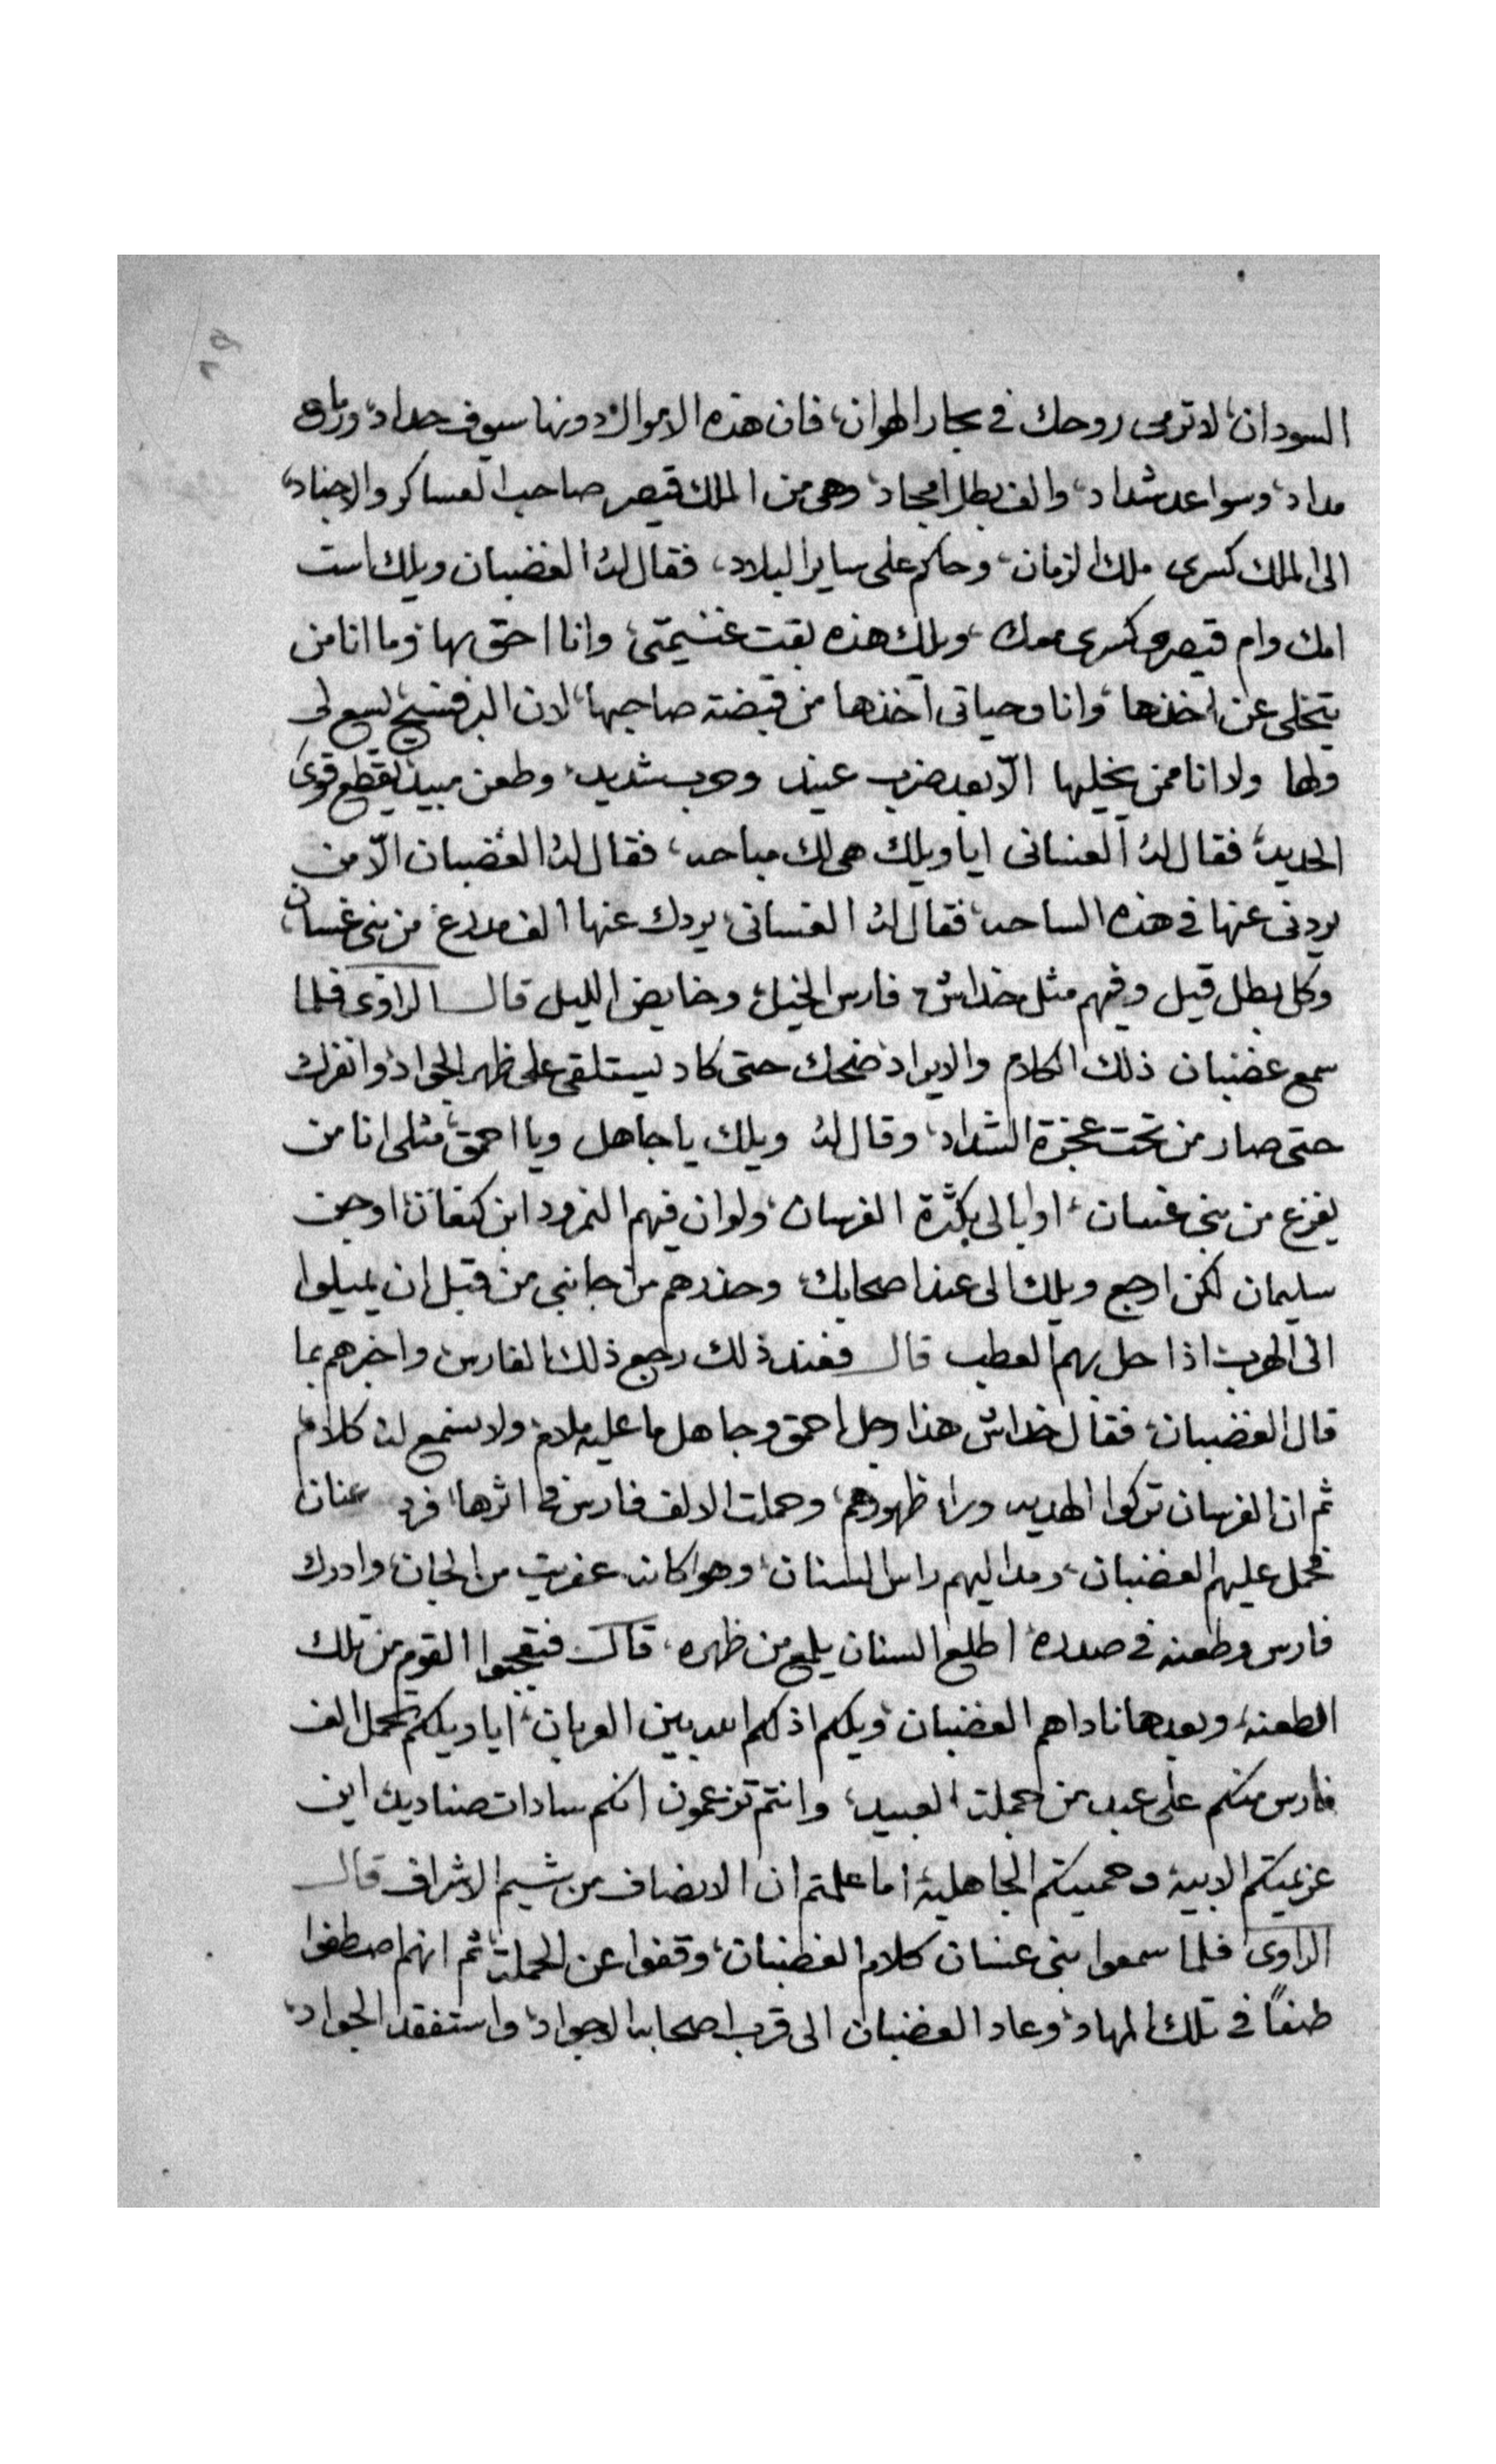 ٦٩
السودان، لا ترمى روحك في بحار الهوان، فان هذه الاموال دونها سيوف حداد، ورماح
مداد، وسواعد شداد، والف بطل امجاد، وهى من الملك قيصر صاحب العساكر والاجناد،
الى الملك كسرى ملك الزمان، وحاكم على ساير البلاد، فقال له الغضبان ويلك است
امك وام قيصر وكسرى معك، ويلك هذه بقت غنيمتى، وانا احق بها، وما انا من
يتخلى عن اخذها، وانا وحياتى آخذها من قبضة صاحبها، لان البر فسيح يسع لى
ولها ولا انا ممن يخليها الّا بعد ضرب عنيد وحرب شديد، وطعن مبيد، يقطع قوى
الحديد، فقال له الغسانى ايا ويلك هى لك مباحه، فقال له الغضبان الّا من
يردنى عنها في هذه الساحه، فقال له الغسانى، يردك عنها الف مدرع من بنى غسان،
وكل بطل قيل وفيهم مثل خداش، فارس الخيل، وخايض الليل قال الراوى فلما
سمع غضبان ذلك الكلام والايراد ضحك حتى كاد يستلقى على ظهر الجواد، وانفرك
حتى صار من تحت عجزة الشداد، وقال له ويلك يا جاهل ويا احمق، مثلى انا من
يفزع من بنى غسان، او ابالى بكثرة الفرسان، ولو ان فيهم النمرود ابن كنعان، او جن
سليمان لكن ارجع ويلك الى عند اصحابك، وحذرهم من جانبى من قبل ان يميلوا
الى الهرب، اذا حل بهم العطب قال فعند ذلك رجع ذلك الفارس واخبرهم بما
قال الغضبان، فقال خداش هذا رجل احمق وجاهل ما عليه ملام، ولا نسمع له كلام
ثم ان الفرسان تركوا الهديه وراء ظهورهم، وحملت الالف فارس في اثرها، فرد عنان
فحمل عليهم الغضبان، ومد اليهم راس السنان، وهو كانه عفريت من الجان، وادرك
فارس وطعنه في صدره، اطلع السنان يلمع من ظهره، قال فتعجبوا القوم من تلك
الطعنه، وبعدها ناداهم الغضبان، ويلكم اذلكم الله بين العربان، ايا ويلكم تحمل الف
فارس منكم على عبد من جملت العبيد، وانتم تزعمون انكم سادات صناديد اين
عزيمتكم الابيه وحميتكم الجاهليه، اما علمتم ان الانصاف من شيم الاشراف قال
الراوى فلما سمعوا بنى غسان كلام الغضبان، وقفوا عن الحملت، ثم انهم اصطفوا
صفاً في تلك المهاد، وعاد الغضبان الى قرب اصحابه الاجواد، واستفقد الجواد،